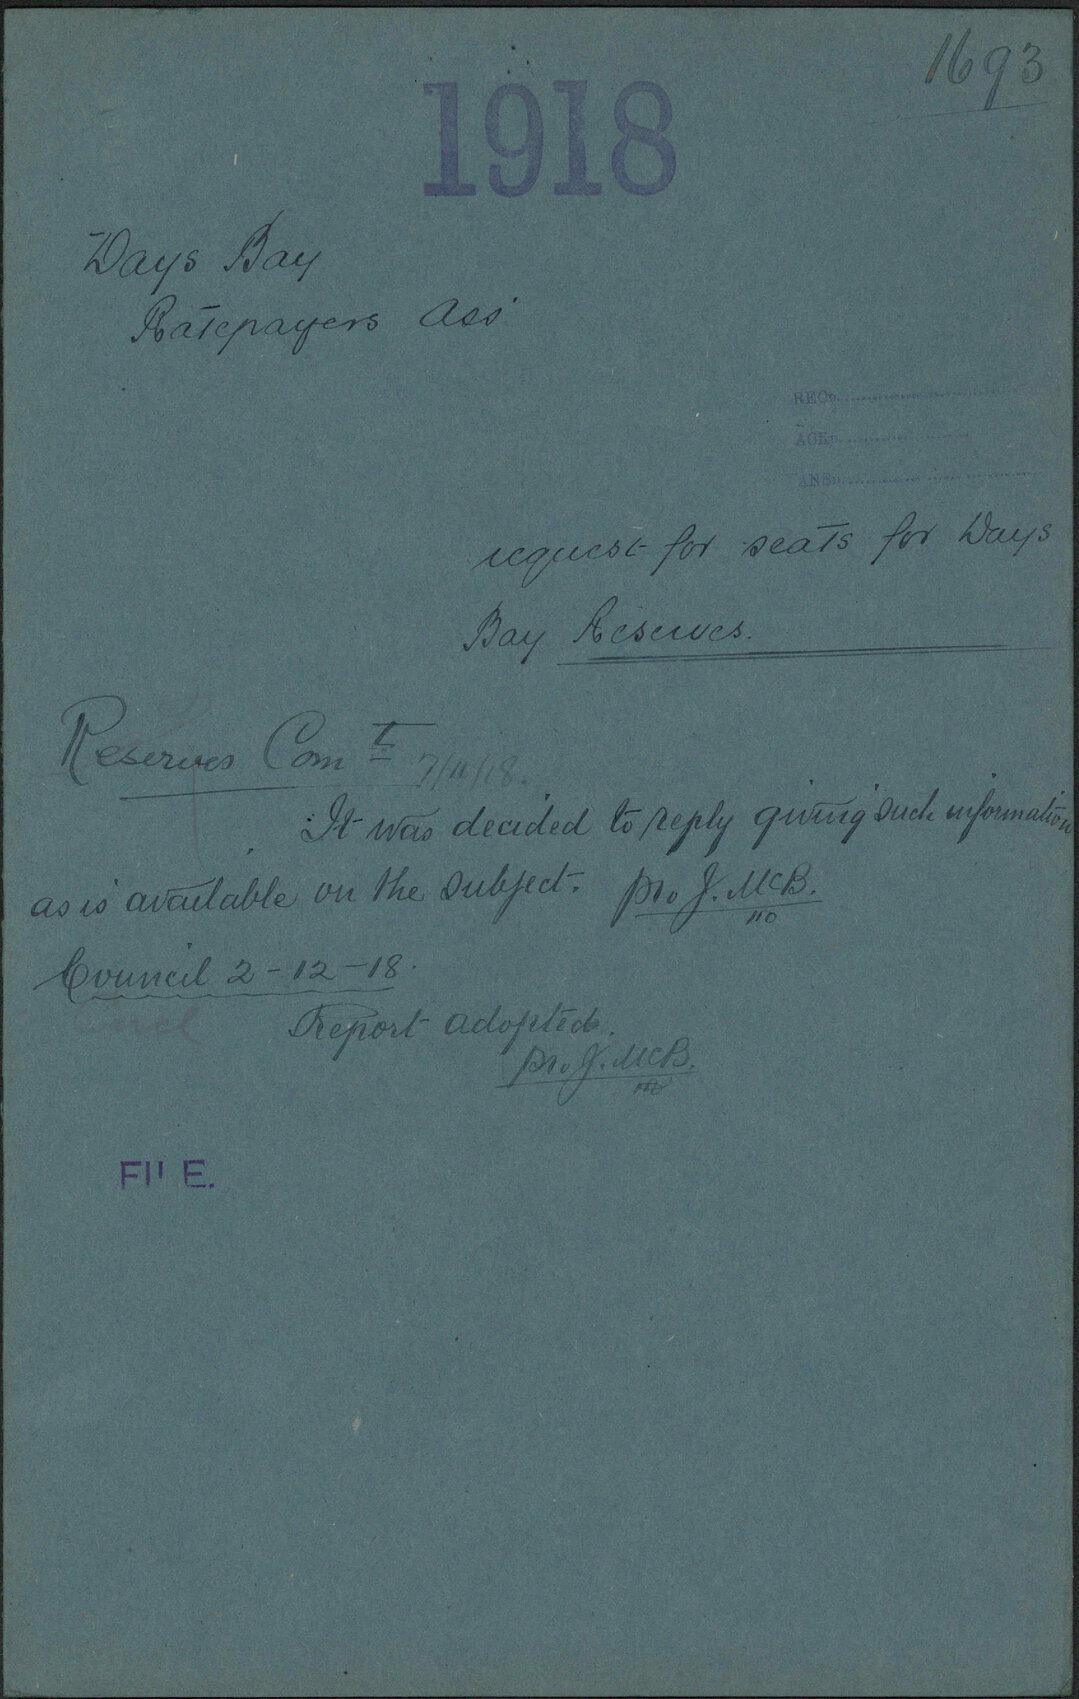 1693
1918
Days Bay
Ratepayers Ass
RECD.
ACKD.
ANSD.
request for seats for Days
Bay Reserves.
Reserves Comt 7/11/18.
It was decided to reply giving such information
as is available on the subject. pro J. McB.
Council 2-12-18.
Report adopted.
pro J. McB.
FILE.